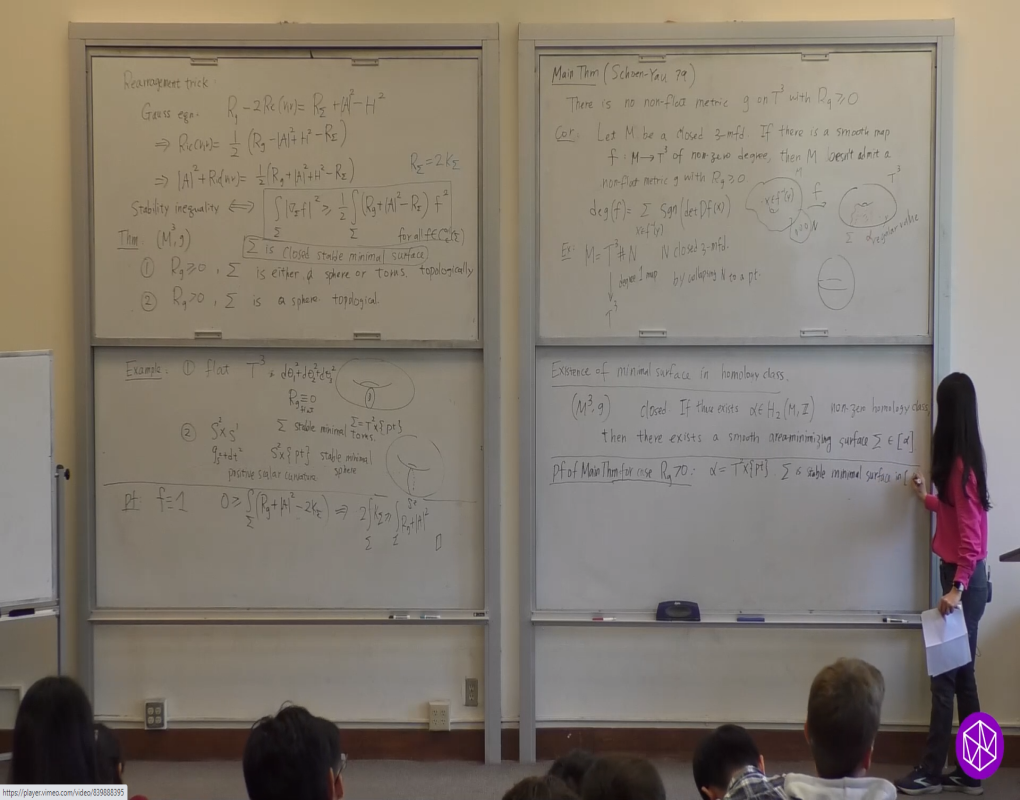 Rearrangement trick.
Gauss eqn. R_g - 2Rc(ν,ν) = R_Σ + |A|² - H²
⇒ Ric(ν,ν) = 1/2 (R_g - |A|² + H² - R_Σ)
⇒ |A|² + Rc(ν,ν) = 1/2 (R_g + |A|² + H² - R_Σ) R_Σ = 2K_Σ
Stability inequality ⟺ ∫_Σ |∇_Σ f|² ≥ 1/2 ∫_Σ (R_g + |A|² - R_Σ) f²
for all f ∈
Thm (M³, g) Σ is closed stable minimal surface
① R_g ≥ 0, Σ is either a sphere or torus topologically
② R_g > 0, Σ is a sphere topological
Example. ① flat T³, dθ₁² + dθ₂² + dθ₃²
R_g ≡ 0
Σ stable minimal Σ = T² x {pt} torus
② S² x S¹
g_{S²} + dt² S² x {pt} stable minimal sphere
positive scalar curvature
pf f = 1 0 ≥ ∫_Σ (R_g + |A|² - 2K_Σ) ⇒ 2∫_Σ K_Σ ≥ ∫_Σ R_g + |A|² □
Main Thm (Schoen-Yau 79)
There is no non-flat metric g on T³ with R_g ≥ 0
Cor. Let M be a closed 3-mfd. If there is a smooth map
f : M → T³ of non-zero degree, then M doesn't admit a
non-flat metric g with R_g ≥ 0
M f T³
deg(f) = Σ_{x∈f⁻¹(y)} Sgn(det Df(x))
x∈f⁻¹(y) N regular value
Ex: M = T³ # N N closed 3-mfd.
↓ degree 1 map by collapsing N to a pt.
T³
Existence of minimal surface in homology class.
(M³, g) closed If there exists α ∈ H₂(M, Z) non-zero homology class,
then there exists a smooth area-minimizing surface Σ ∈ [α]
Pf of Main Thm for case R_g > 0: α = T² x {pt}. Σ is stable minimal surface in [
https://player.vimeo.com/video/839888395